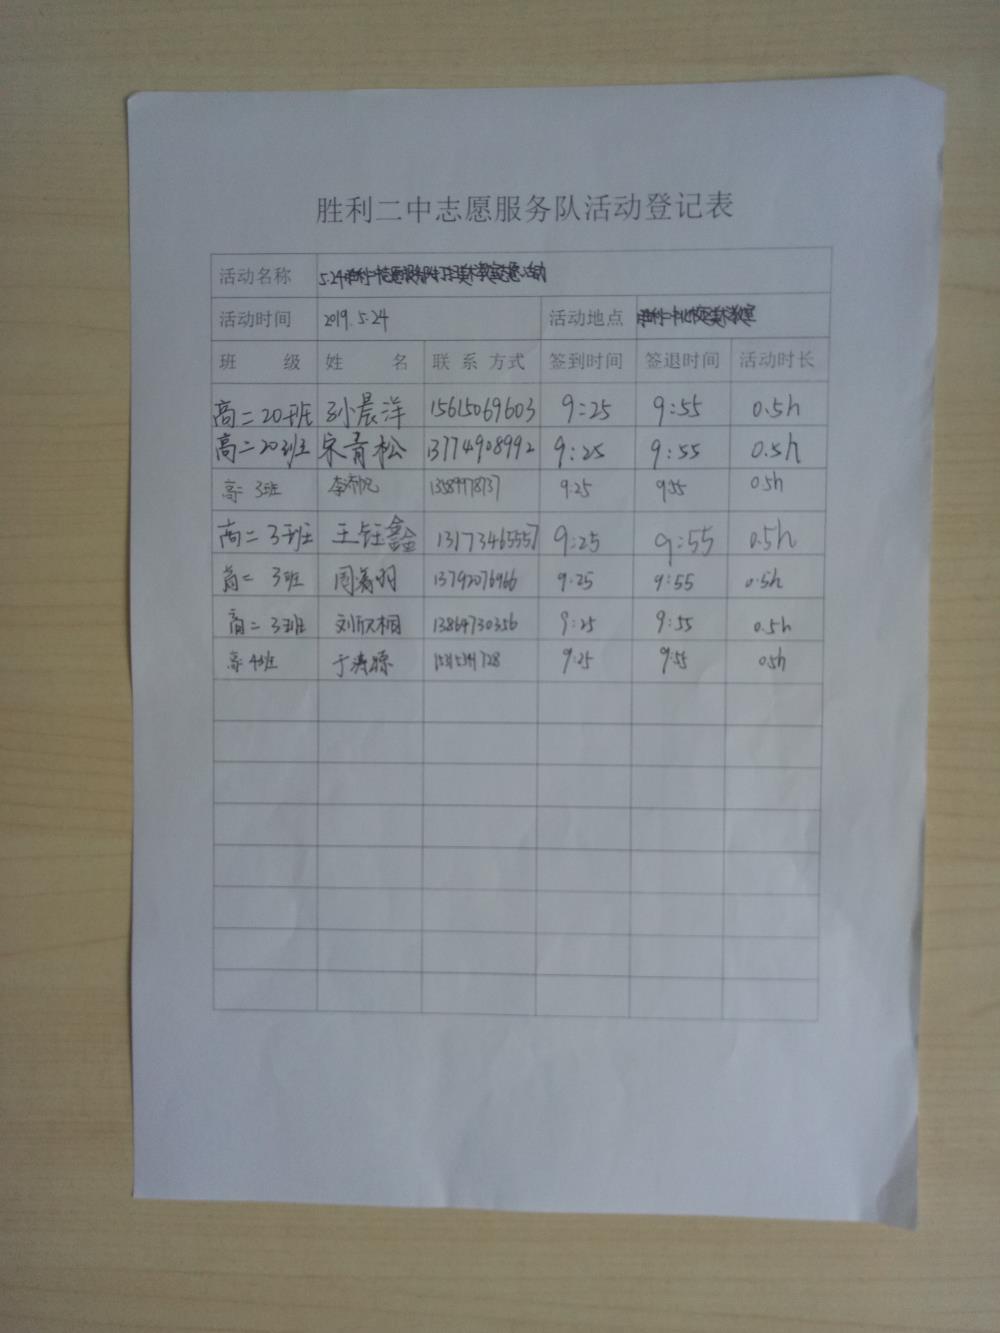 胜利二中志愿服务队活动登记表
活动名称 5.24胜利二中志愿服务队打扫美术教室志愿活动
活动时间 2019.5.24 活动地点 胜利二中北校区美术教室
班 级 姓 名 联系方式 签到时间 签退时间 活动时长
高二20班 孙晨洋 15615069603 9:25 9:55 0.5h
高二20班 宋青松 13774908992 9:25 9:55 0.5h
高二 3班 9:25 9:55 0.5h
高二 3班 王钰鑫 13173465557 9:25 9:55 0.5h
高二 3班 13792076966 9:25 9:55 0.5h
高二 3班 刘欣桐 13864730356 9:25 9:55 0.5h
高二4班 9:25 9:55 0.5h